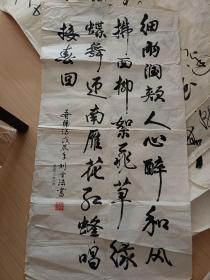 细雨润颜人心醉和风
拂面柳絮飞草绿
蝶舞迎南雁花红蜂唱
接春回